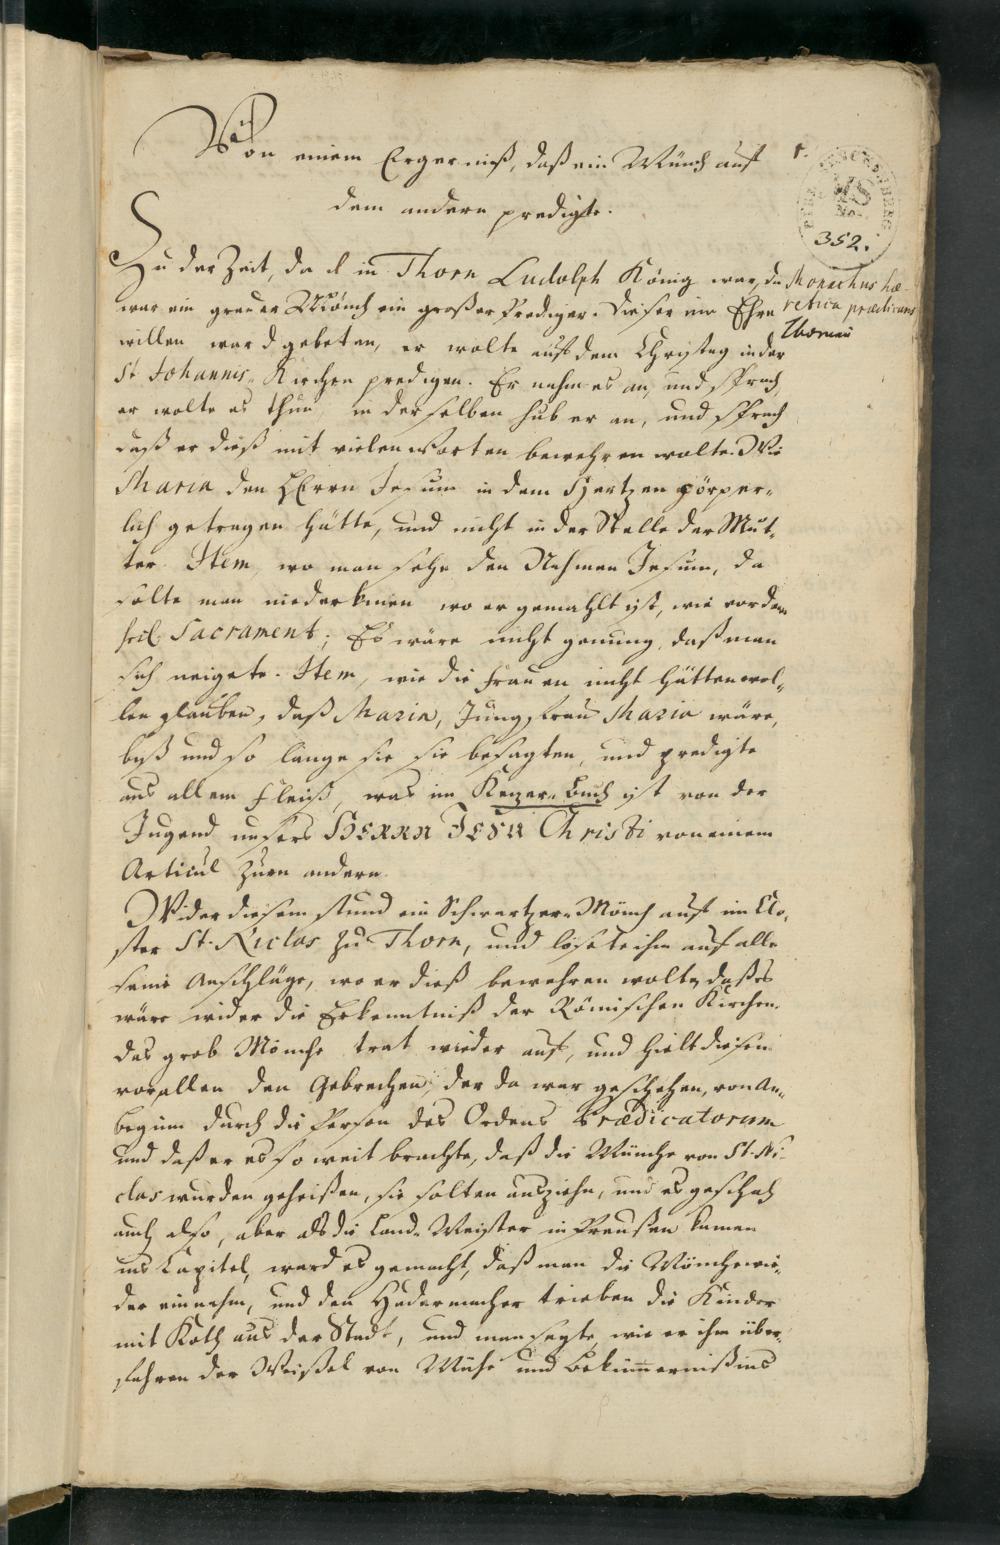 Von einem Ergerniß, daß ein Münch auf
dem andern predigte.
1.
352.
Zu der Zeit, da in Thorn Ludolph König war, da
war ein grauer Mönch ein großer Prediger. Dieser um Ehre
willen ward gebeten, er wolte auf dem Christag in der
St Johannis-Kirchen predigen. Er nahm es an, und sprach,
er wolte es thun, in derselben hub er an, und sprach
daß er dieß mit vielen Worten bewehren wolte. Wie
Maria den HErrn Jesum in dem Hertzen cörper-
lich getragen hätte, und nicht in der Stelle der Mut-
ter. Item, wo man sehe den Nahmen Jesum, da
solte man niederknien wo er gemahlt ist, wie vor dem
Sacrament; Es wäre nicht genung, daß man
sich neigete. Item, wie die Frauen nicht hätten wol-
len glauben, daß Maria, Jungfrau Maria wäre,
biß und so lange sie sie besagten, und predigte
aus allem Fleiß, was im Kezer-Buch ist von der
Jugend unsers HERRN JESU Christi von einem
Articul zum andern.
Wider diesem stund ein Schwartzer-Mönch auf im Clo-
ster St. Niclas zu Thorn, und lösete ihm auf alle
seine Anschläge, wo er dieß bewehren wolte, daß es
wäre wider die Erkenntniß der Römischen Kirchen.
Das grob Mönche trat wieder auf, und hielt diesen
vor allen den Gebrechen, der da war geschehen, von An-
beginn durch die Person des Ordens Prædicatorum
und daß er es so weit brachte, daß die Münche von St. Ni-
clas wurden geheißen, sie solten ausziehn, und es geschah
auch also, aber als die Land-Meister in Preußen kamen
ins Capitel, ward es gemacht, daß man die Mönche wie-
der einnahm, und den Hadermacher trieben die Kinder
mit Koth aus der Stadt, und man sagte wie er ihm über-
fahren der Weißel von Mühe und Bekümmerniß ins
Monachus hæ-
retica prædicans
Thorniæ